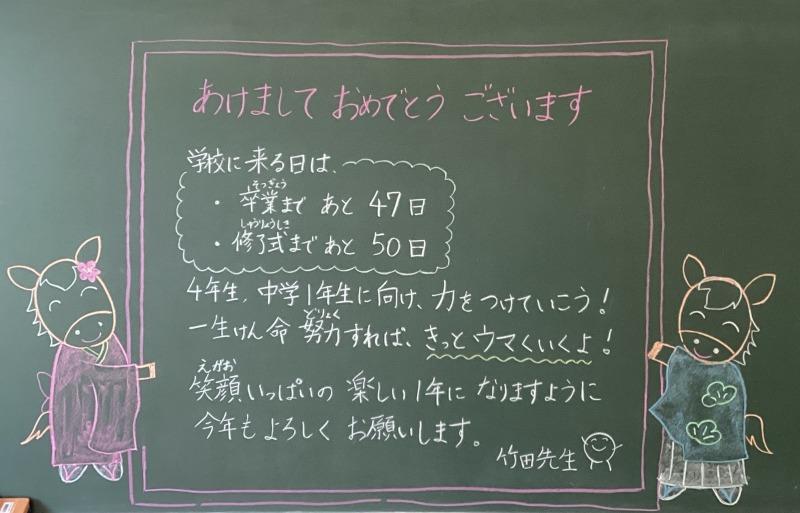 あけまして おめでとう ございます
学校に来る日は、
・卒業まで あと 47日
そつぎょう
・修了式まで あと 50日
しゅうりょうしき
4年生、中学1年生に向け、力をつけていこう!
一生けん命 努力すれば、きっと ウマくいくよ!
どりょく
笑顔いっぱいの 楽しい1年に なりますように
えがお
今年もよろしく お願いします。
竹田先生